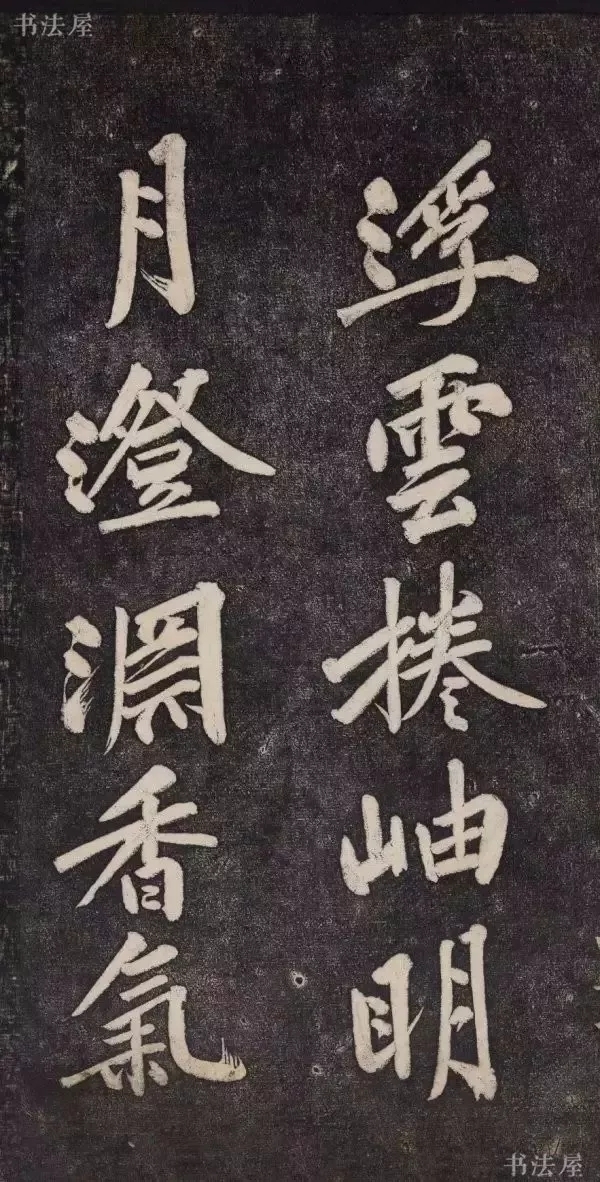 书法屋
浮雲捲岫明
月澄淵香氣
书法屋